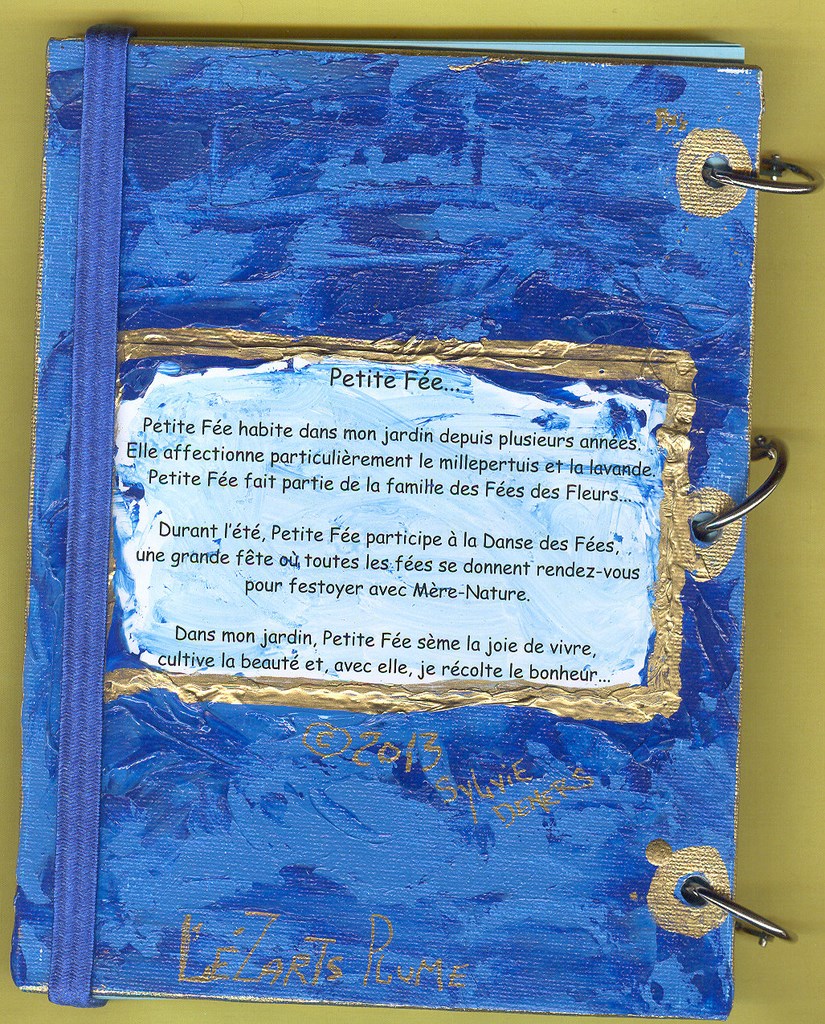 Petite Fée...
Petite Fée habite dans mon jardin depuis plusieurs années.
Elle affectionne particulièrement le millepertuis et la lavande.
Petite Fée fait partie de la famille des Fées des Fleurs...
Durant l'été, Petite Fée participe à la Danse des Fées,
une grande fête où toutes les fées se donnent rendez-vous
pour festoyer avec Mère-Nature.
Dans mon jardin, Petite Fée sème la joie de vivre,
cultive la beauté et, avec elle, je récolte le bonheur...
©2013
SYLVIE
DEMERS
LéZARTS PLUME